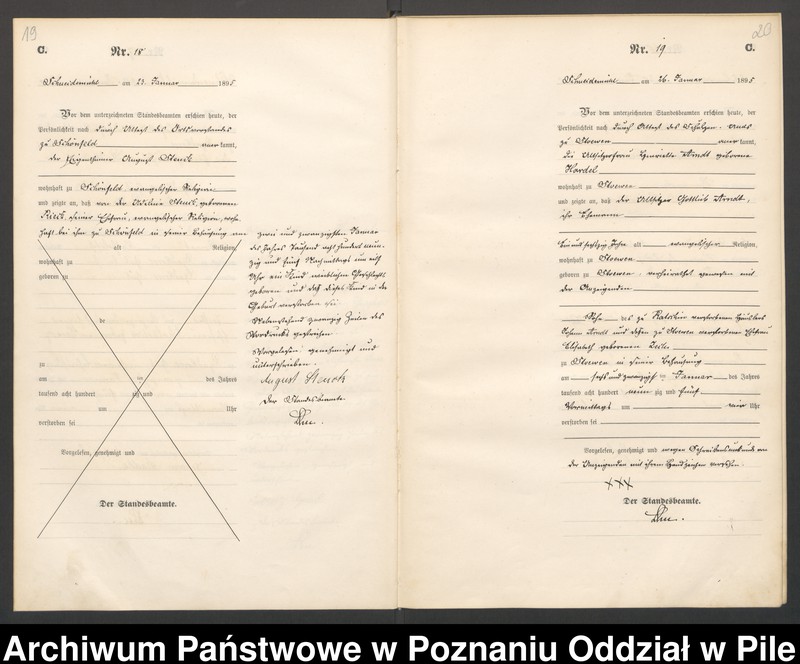 19
C.
Nr. 18
Schneidemühl am 23. Januar 1895
Vor dem unterzeichneten Standesbeamten erschien heute, der
Persönlichkeit nach durch Attest des Ortsvorstandes
zu Schönfeld kannt,
der Eigenthümer August Steuck
wohnhaft zu Schönfeld, evangelischer Religion
und zeigte an, daß von der Ottilie Steuck geborenen
seiner Ehefrau, evangelischer Religion, wohn-
haft bei ihm zu Schönfeld in seiner Behausung am
alt Religion,
wohnhaft zu
geboren zu
de
zu
am ten des Jahres
tausend acht hundert zig und
um Uhr
verstorben sei
Vorgelesen, genehmigt und
Der Standesbeamte.
zwei und zwanzigsten Januar
des Jahres tausend acht hundert neun-
zig und fünf Nachmittags um elf
Uhr ein Kind weiblichen Geschlechts
geboren und daß dieses Kind in der
Geburt verstorben sei
Nebenstehend zwanzig Zeilen des
Vordrucks gestrichen.
Vorgelesen, genehmigt und
unterschrieben.
August Steuck
Der Standesbeamte.
20
Nr. 19
C.
Schneidemühl am 26. Januar 1895
Vor dem unterzeichneten Standesbeamten erschien heute, der
Persönlichkeit nach durch Attest des Schulzen-
zu Stoewen kannt,
die Altsitzerfrau Henriette Arndt geborene
wohnhaft zu Stoewen
und zeigte an, daß der Altsitzer Gottlieb Arndt,
ihr Ehemann
fünf und sechszig Jahr alt evangelischer Religion,
wohnhaft zu Stoewen
geboren zu Stoewen, verheirathet gewesen mit
der Anzeigenden
Sohn des zu verstorbenen
Johann Arndt und dessen zu Stoewen verstorbenen Ehefrau
Elisabeth geborenen
zu Stoewen in seiner Behausung
am sechs und zwanzigsten Januar des Jahres
tausend acht hundert neun zig und fünf
Vormittags um vier Uhr
verstorben sei
Vorgelesen, genehmigt und wegen Schreibensunkunde von
der Anzeigenden mit ihrem Handzeichen versehen.
XXX
Der Standesbeamte.
Archiwum Państwowe w Poznaniu Oddział w Pile